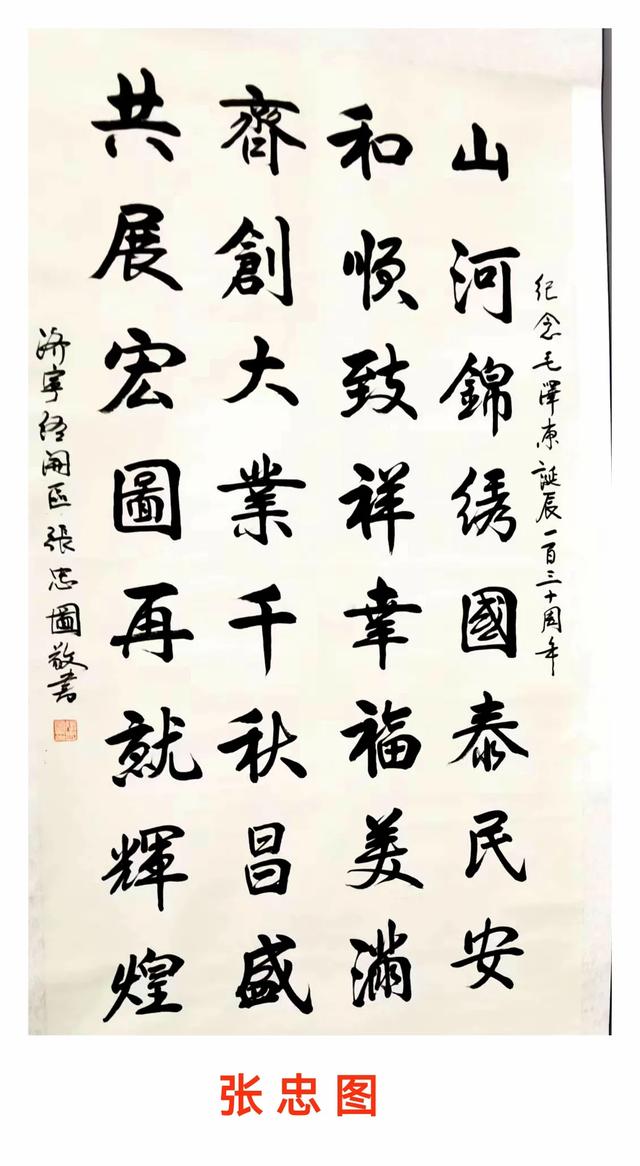 纪念毛澤东誕辰一百三十周年
山河錦绣國泰民安
和順致祥幸福美满
齊創大業千秋昌盛
共展宏圖再就輝煌
济宁经开区張忠圖敬书
张忠图